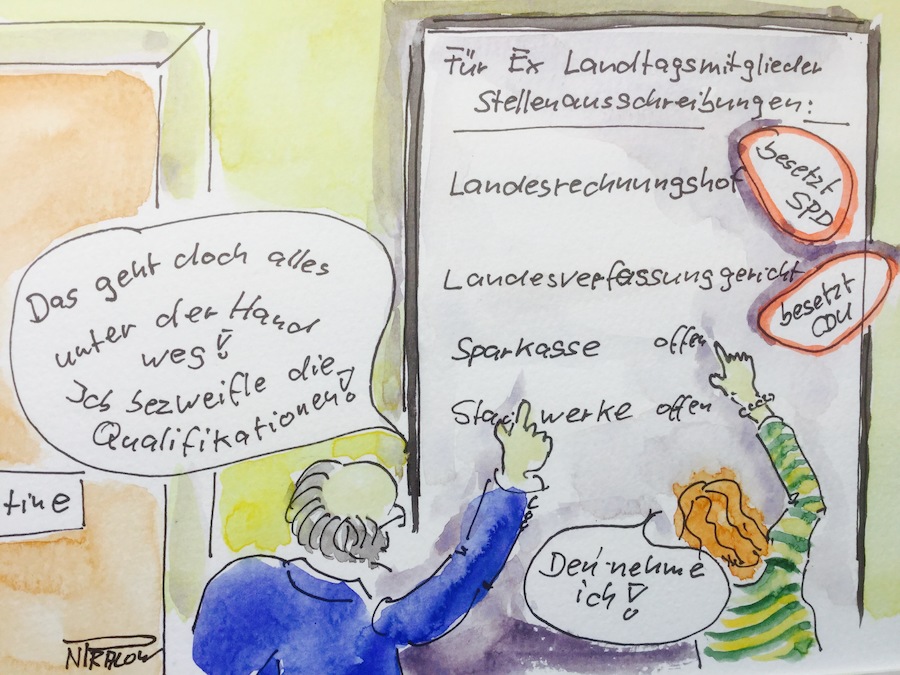 Für Ex Landtagsmitglieder
Stellenausschreibungen:
Landesrechnungshof
besetzt
SPD
Landesverfassunggericht
besetzt
CDU
Sparkasse offen
werke offen
Das geht doch alles
unter der Hand
weg!
Ich bezweifle die
Qualifikationen!
Den nehme
ich!
tine